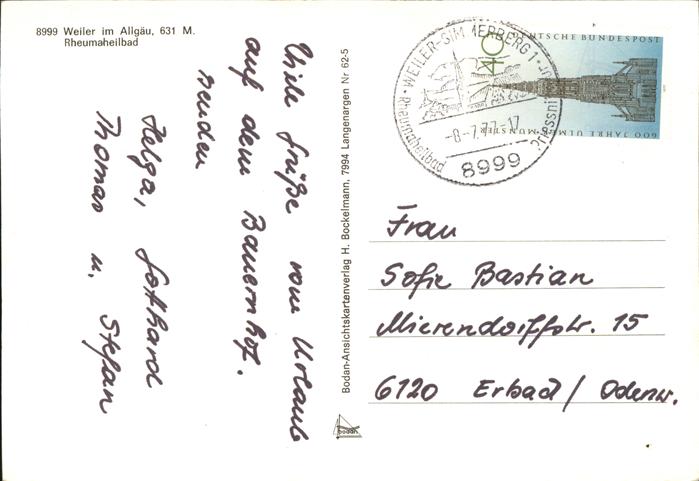 8999 Weiler im Allgäu, 631 M.
Rheumaheilbad
Viele Grüße vom Urlaub
auf dem Bauernhof.
senden
Helga, Gotthard
Thomas u. Stefan
Bodan-Ansichtskartenverlag H. Bockelmann, 7994 Langenargen Nr 62-5
bodan
WEILER-SIMMERBERG 1
Rheumaheilbad
-8-7.77-17
8999
40
DEUTSCHE BUNDESPOST
600 JAHRE ULMER MÜNSTER
Frau
Sofie Bastian
Mierendorffstr. 15
6120 Erbach / Odenw.